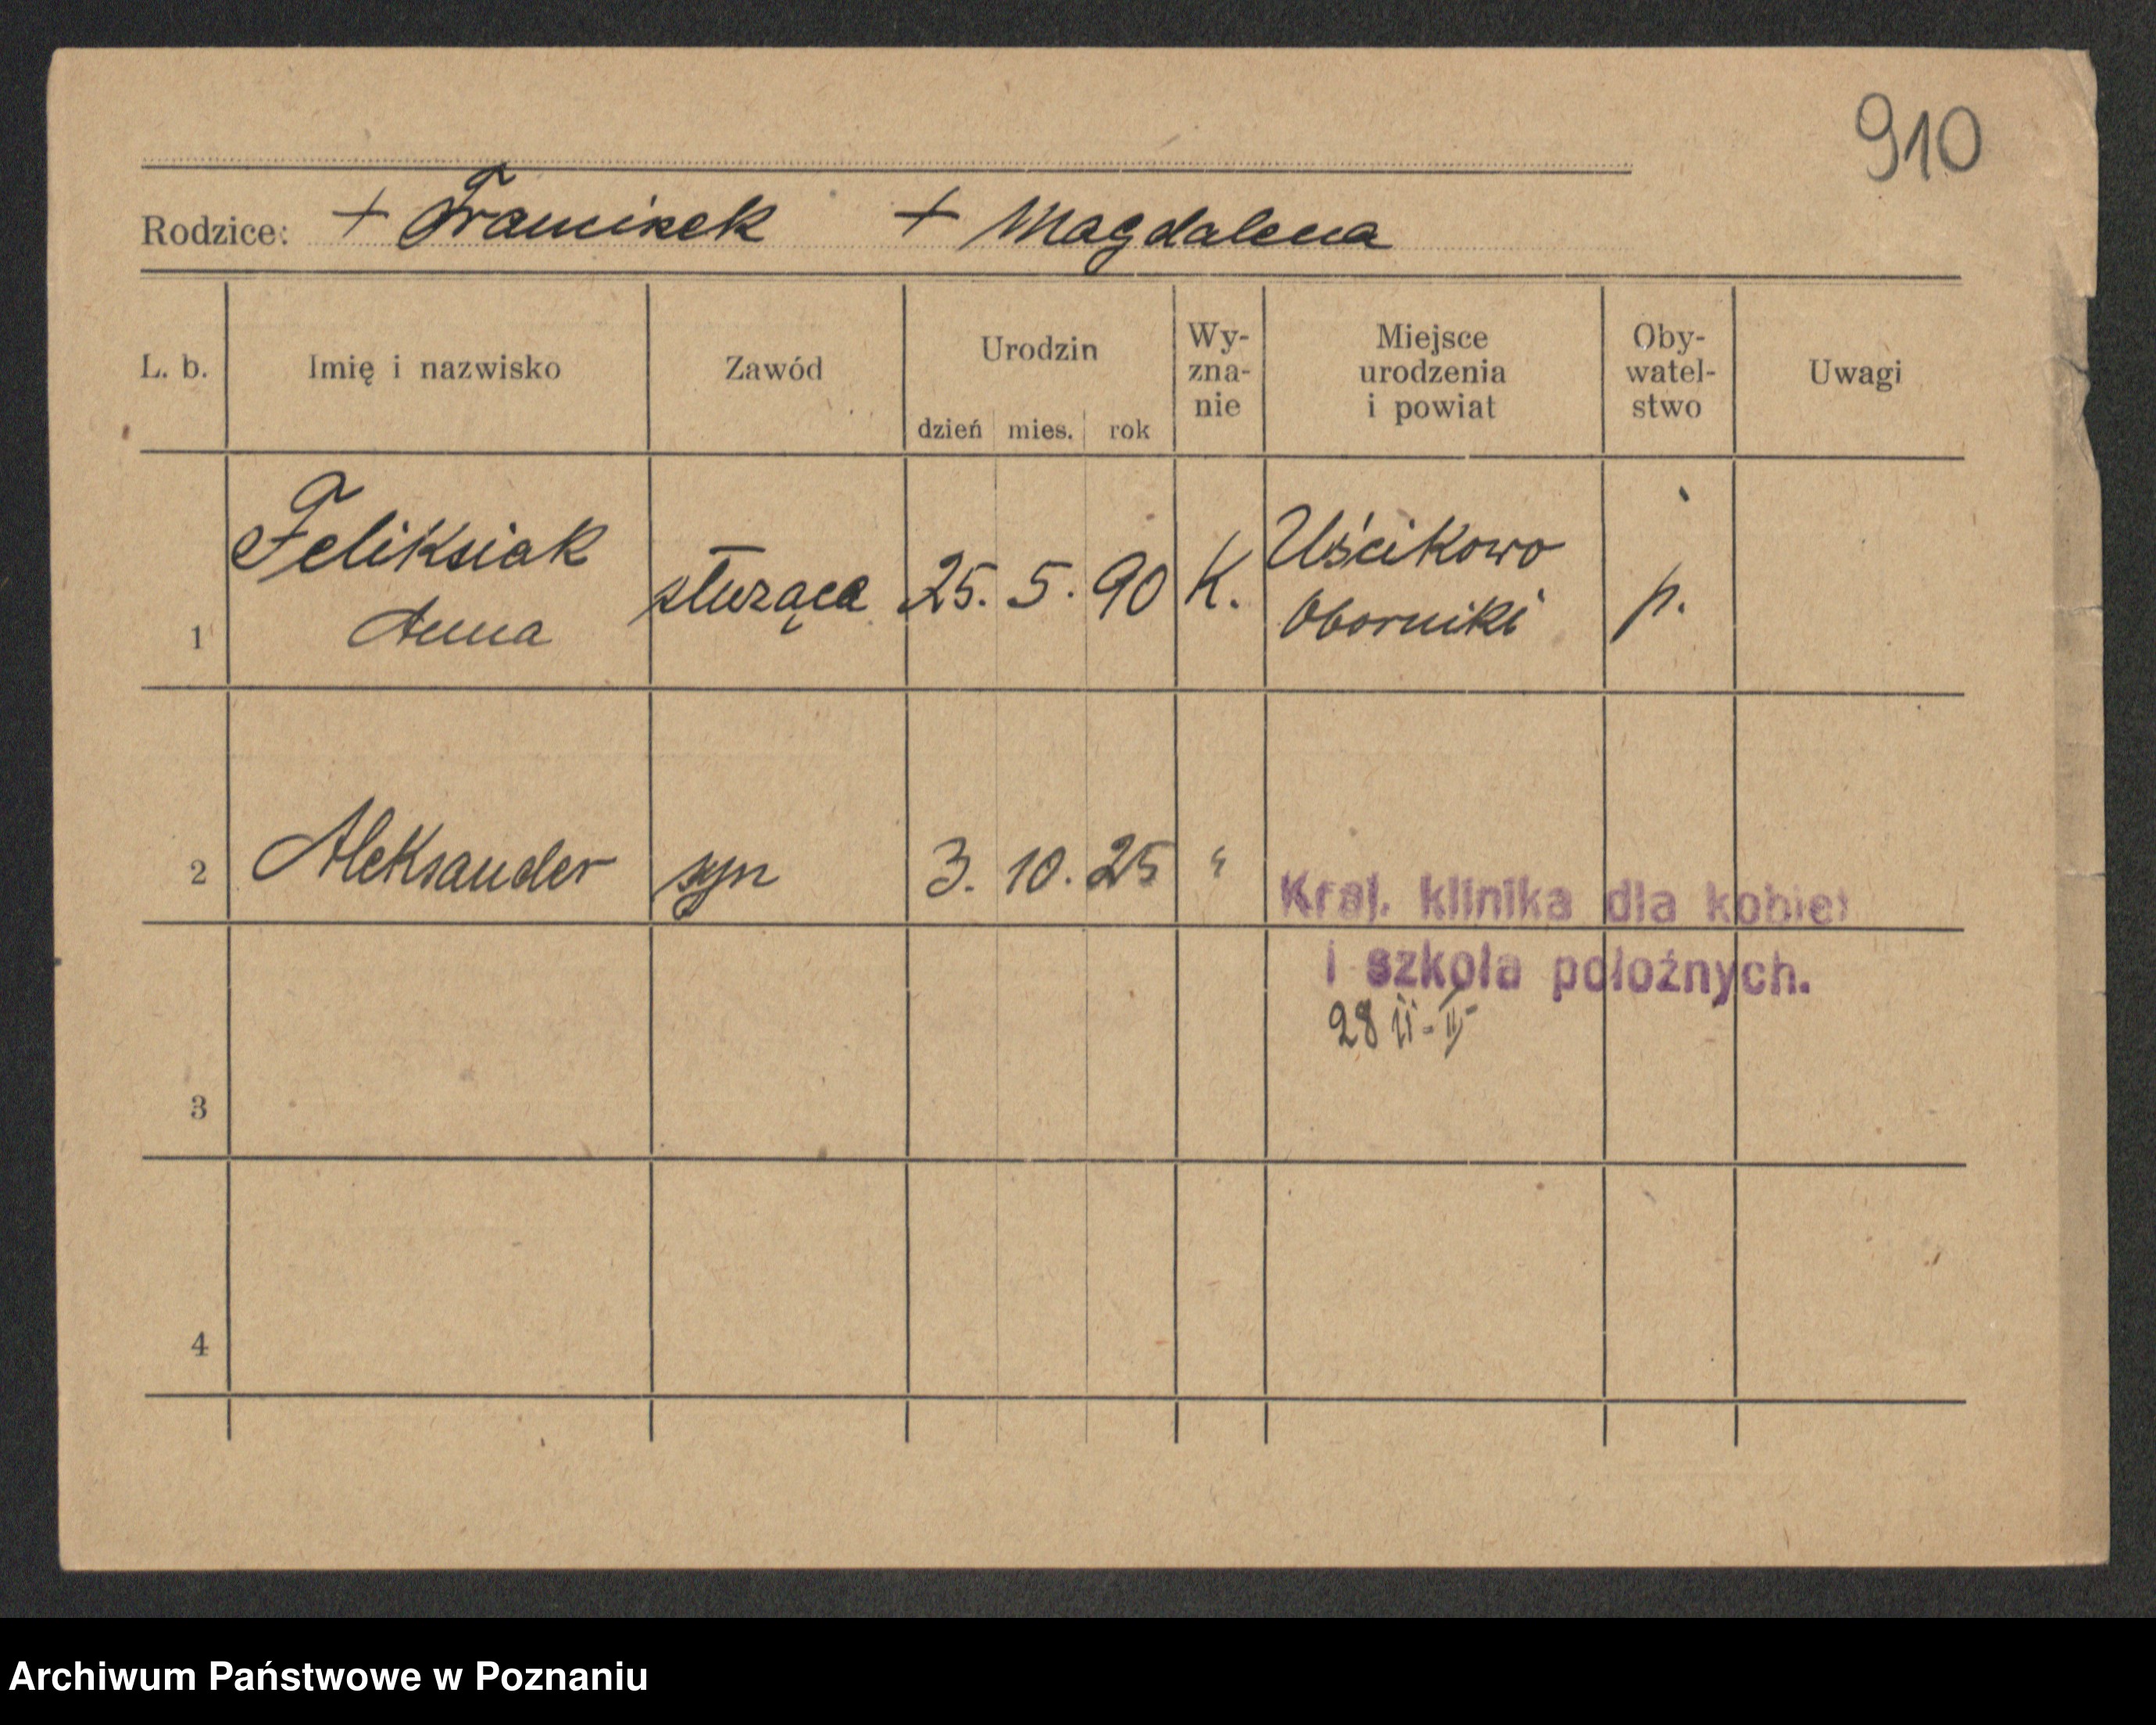 910
Rodzice: + Franciszek + Magdalena
L. b. Imię i nazwisko Zawód Urodzin dzień mies. rok Wy-zna-nie Miejsce urodzenia i powiat Oby-watel-stwo Uwagi
Feliksiak Uścikowo
1 Anna służąca 25. 5. 90 K. Oborniki p.
2 Aleksander syn 3. 10. 25 "
Kraj. klinika dla kobiet
i szkoła położnych.
28
3
4
Archiwum Państwowe w Poznaniu